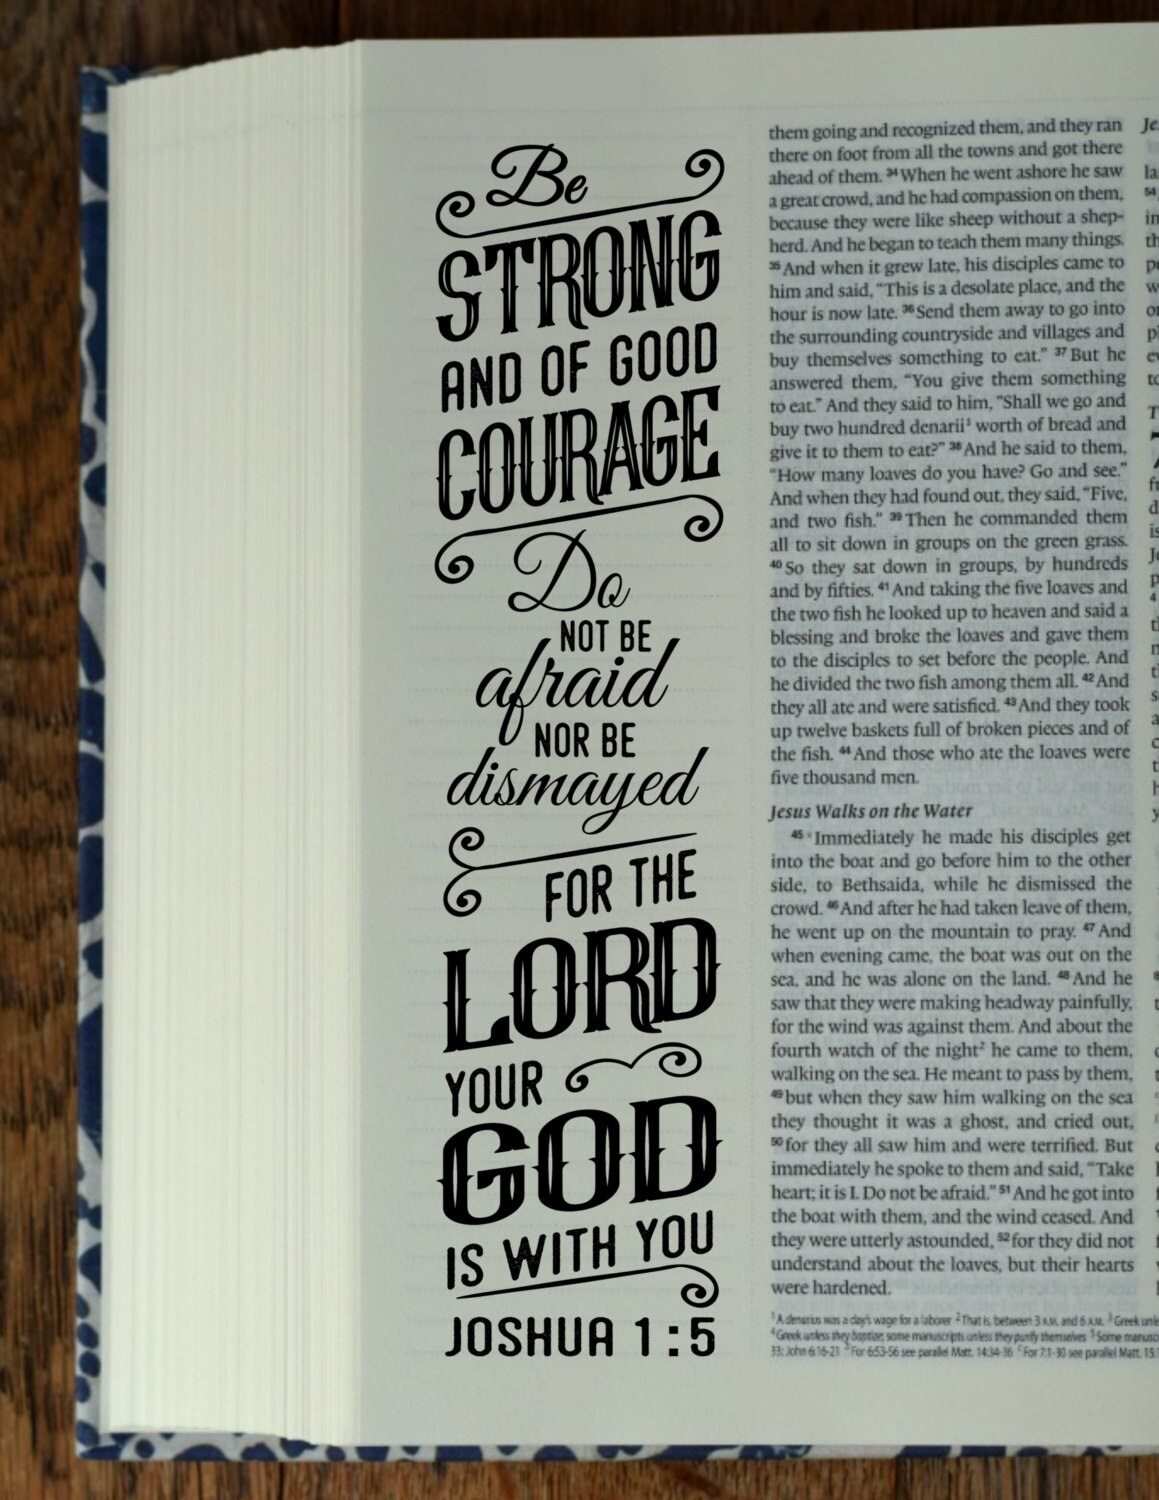 Be
STRONG
AND OF GOOD
COURAGE
Do
NOT BE
afraid
NOR BE
dismayed
FOR THE
LORD
YOUR
GOD
IS WITH YOU
JOSHUA 1:5
them going and recognized them, and they ran
there on foot from all the towns and got there
ahead of them. 34 When he went ashore he saw
a great crowd, and he had compassion on them,
because they were like sheep without a shep-
herd. And he began to teach them many things.
35 And when it grew late, his disciples came to
him and said, “This is a desolate place, and the
hour is now late. 36 Send them away to go into
the surrounding countryside and villages and
buy themselves something to eat.” 37 But he
answered them, “You give them something
to eat.” And they said to him, “Shall we go and
buy two hundred denarii³ worth of bread and
give it to them to eat?” 38 And he said to them,
“How many loaves do you have? Go and see.”
And when they had found out, they said, “Five,
and two fish.” 39 Then he commanded them
all to sit down in groups on the green grass.
40 So they sat down in groups, by hundreds
and by fifties. 41 And taking the five loaves and
the two fish he looked up to heaven and said a
blessing and broke the loaves and gave them
to the disciples to set before the people. And
he divided the two fish among them all. 42 And
they all ate and were satisfied. 43 And they took
up twelve baskets full of broken pieces and of
the fish. 44 And those who ate the loaves were
five thousand men.
Jesus Walks on the Water
45 Immediately he made his disciples get
into the boat and go before him to the other
side, to Bethsaida, while he dismissed the
crowd. 46 And after he had taken leave of them,
he went up on the mountain to pray. 47 And
when evening came, the boat was out on the
sea, and he was alone on the land. 48 And he
saw that they were making headway painfully,
for the wind was against them. And about the
fourth watch of the night² he came to them,
walking on the sea. He meant to pass by them,
49 but when they saw him walking on the sea
they thought it was a ghost, and cried out,
50 for they all saw him and were terrified. But
immediately he spoke to them and said, “Take
heart; it is I. Do not be afraid.” 51 And he got into
the boat with them, and the wind ceased. And
they were utterly astounded, 52 for they did not
understand about the loaves, but their hearts
were hardened.
1 A denarius was a day's wage for a laborer 2 That is, between 3 A.M. and 6 A.M. 3 Greek
4 Greek unless they baptize; some manuscripts unless they purify themselves 5 Some
33; John 6:16-21 For 6:53-56 see parallel Matt. 14:34-36 For 7:1-30 see parallel Matt. 15: